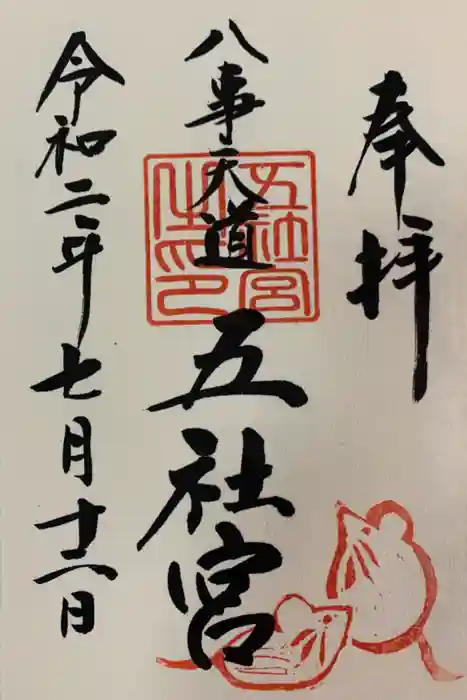 奉拝
八事天道
五社宮
令和二年七月十二日
五社宮
之印